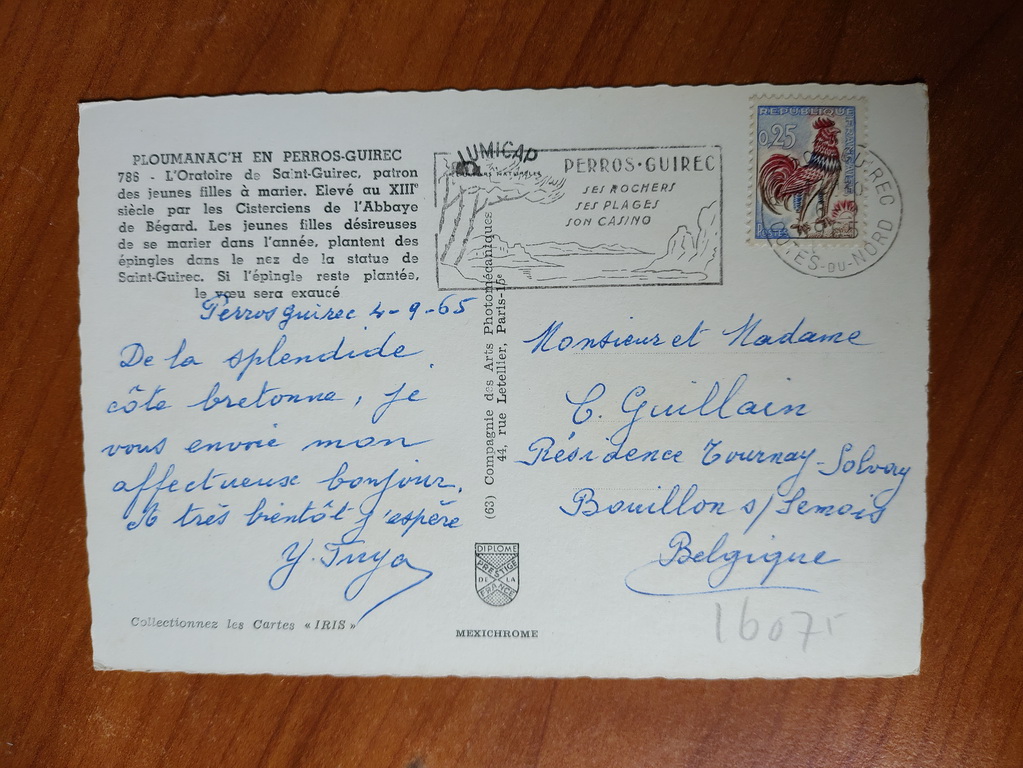 PLOUMANAC'H EN PERROS-GUIREC
786 - L'Oratoire de Saint-Guirec, patron
des jeunes filles à marier. Elevé au XIIIe
siècle par les Cisterciens de l'Abbaye
de Bégard. Les jeunes filles désireuses
de se marier dans l'année, plantent des
épingles dans le nez de la statue de
Saint-Guirec. Si l'épingle reste plantée,
le vœu sera exaucé
Perros Guirec 4-9-65
De la splendide
côte bretonne, je
vous envoie mon
affectueux bonjour.
A très bientôt j'espère
Collectionnez les Cartes « IRIS »
LUMICAP
PERROS-GUIREC
SES ROCHERS
SES PLAGES
SON CASINO
REPUBLIQUE FRANÇAISE
0,25
GUIREC
COTES-DU-NORD
(63) Compagnie des Arts Photomécaniques
44, rue Letellier, Paris-15e
DIPLOME
PRESTIGE
DE LA
FRANCE
MEXICHROME
Monsieur et Madame
C. Guillain
Résidence Tournay-Solvay
Bouillon s/ Semois
Belgique